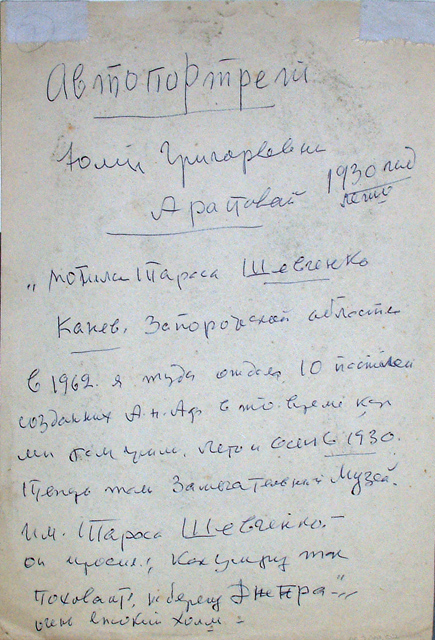 Автопортрет
Юлии Григорьевны
Араповой
1930 год
лето
"Могила Тараса Шевченко
Канев, Запорожской области
В 1962 я туда отдала 10 пастелей
созданных А.Н.Аф в то время как
мы там жили. Лето и осень 1930.
Теперь там Замечательный Музей.
Им. Тараса Шевченко
он просил, Как умру так
поховайте, берегу Днепра"
очень высокий холм